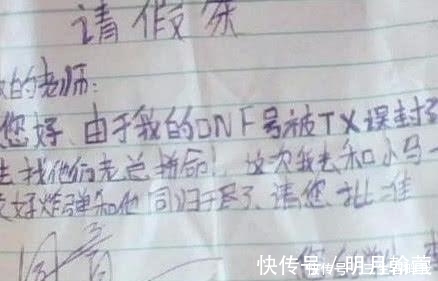 请假条
的老师:
您好,由于我的DNF号被TX误封了
去找他们老总拼命!这次我去和小马一
好炸弹和他同归于尽了,请您批准
您的学生
快传号/明月翰萱